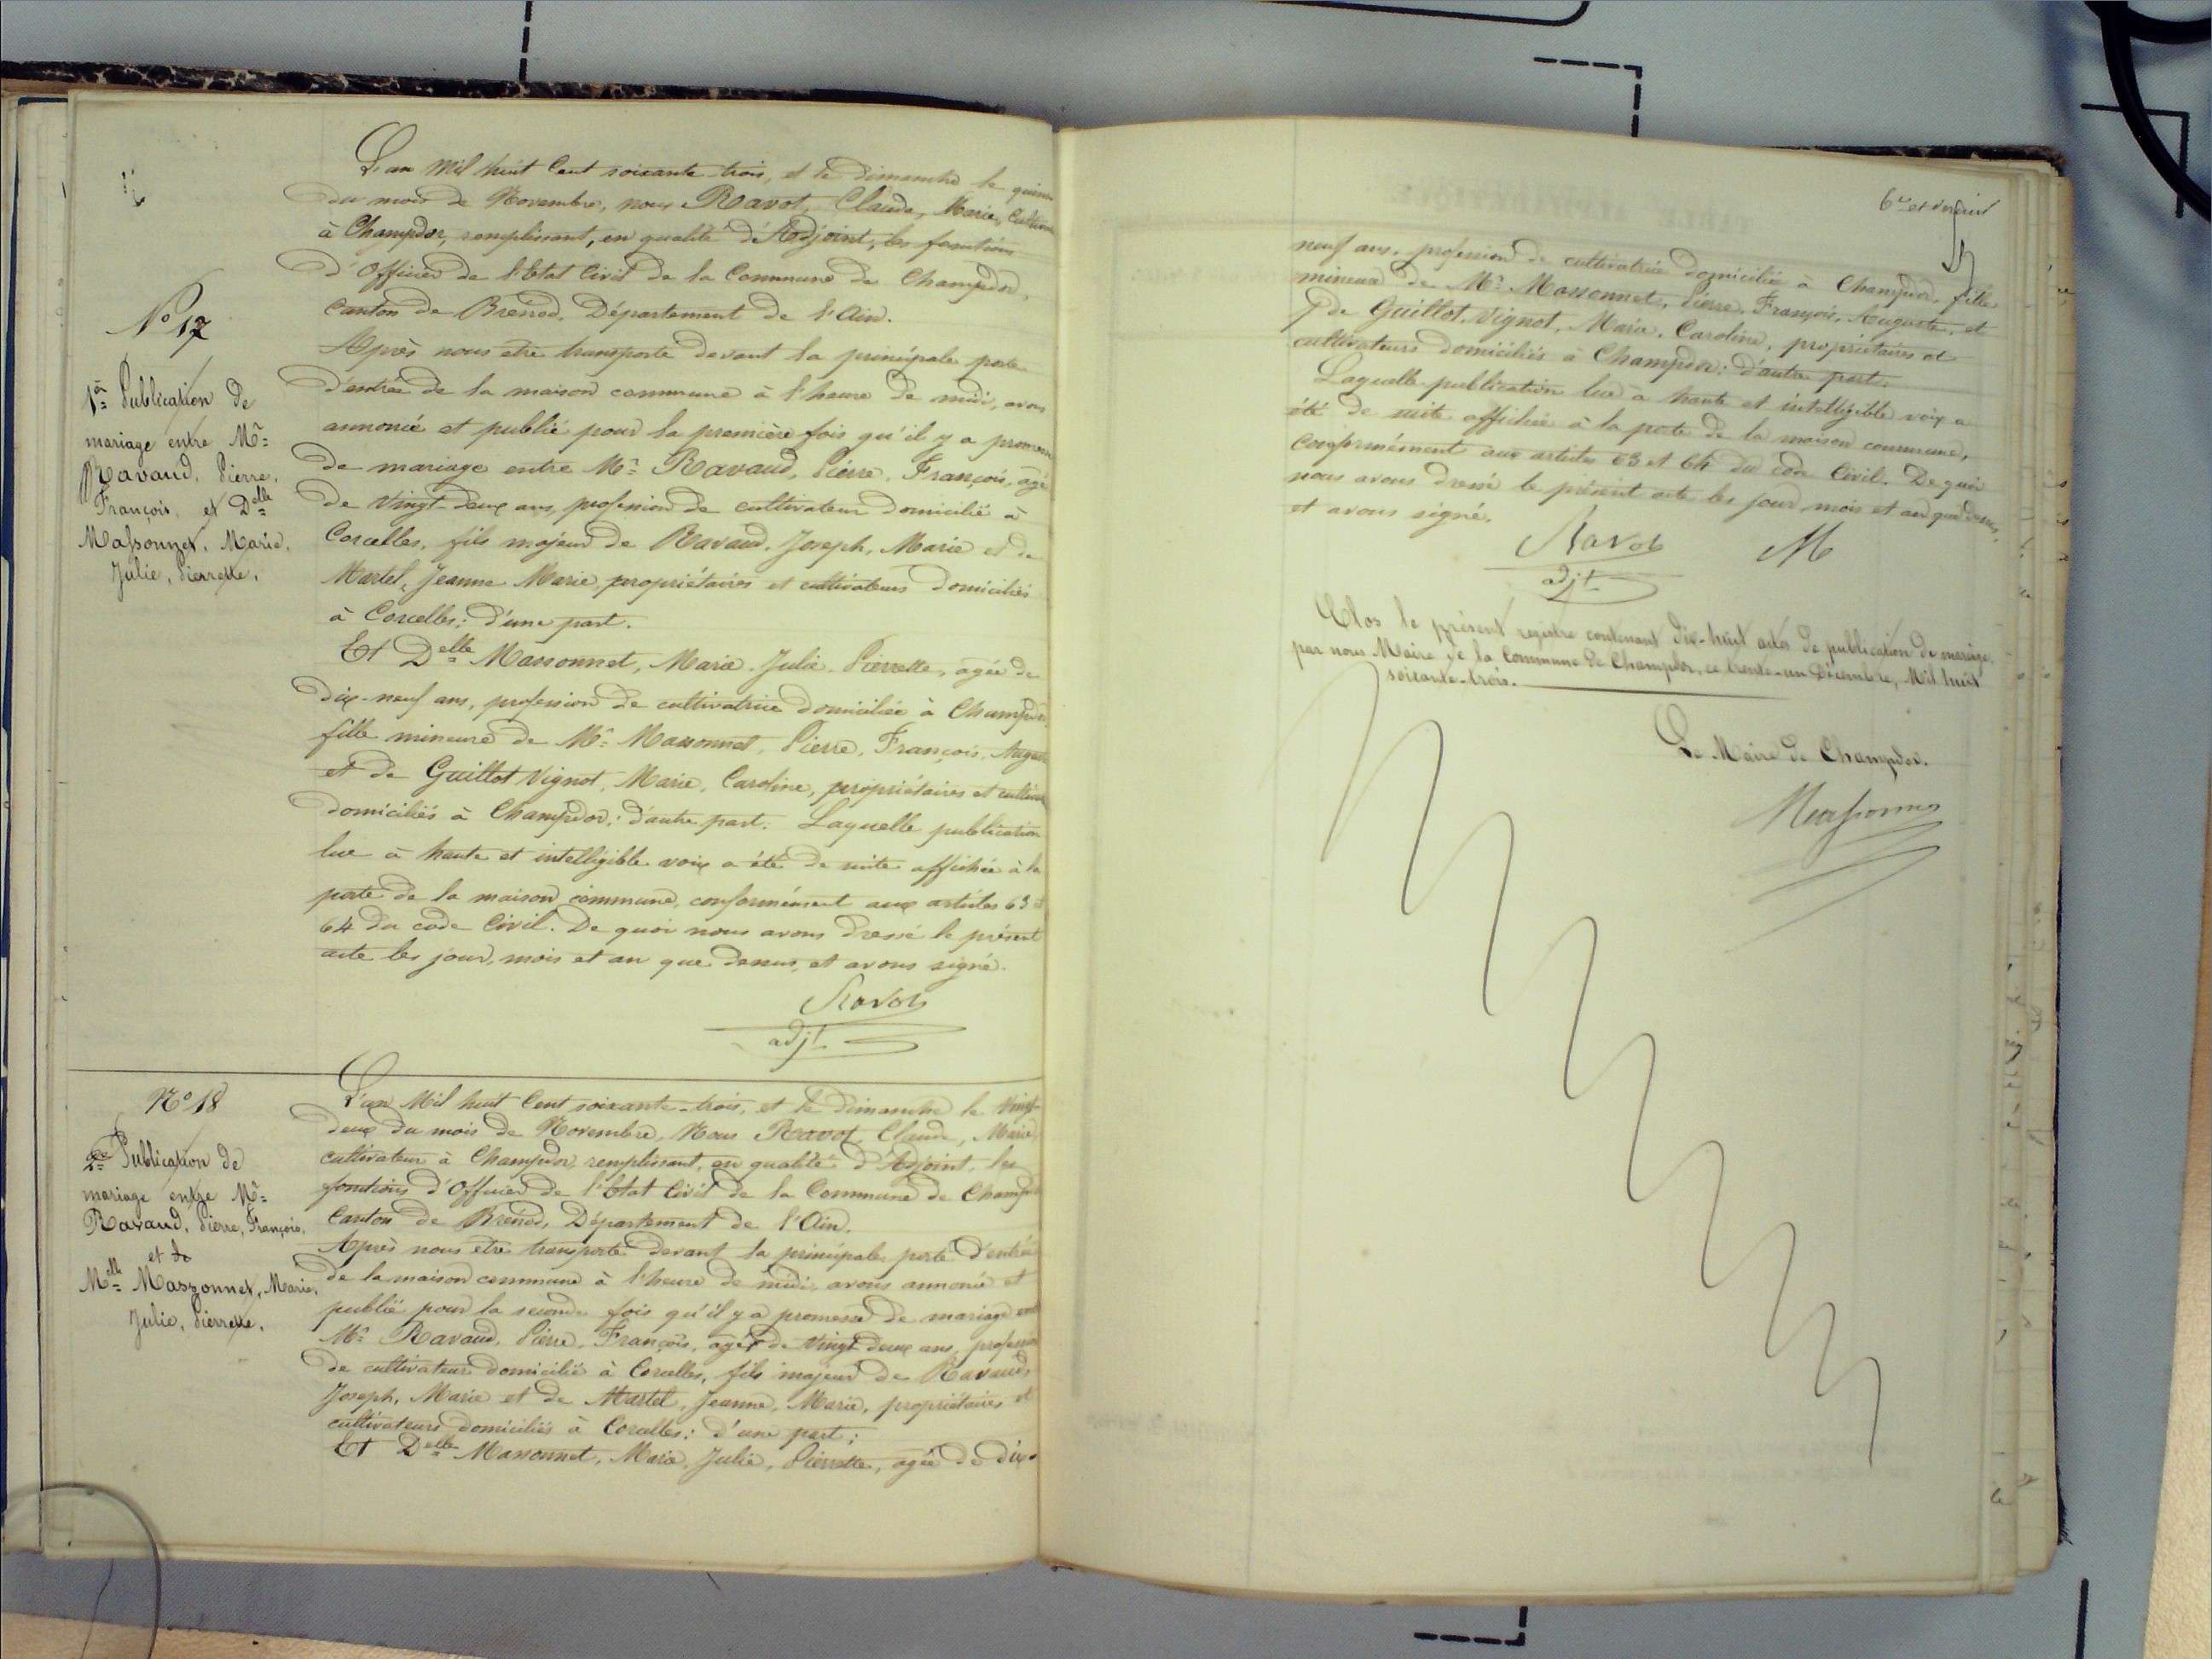 L'an Mil huit Cent soixante trois, et le Dimanche le quinze
du mois de Novembre, nous Ravot, Claude, Marie, Cultivateur
à Champdor, remplissant, en qualité d'Adjoint, les fonctions
d'Officier de l'Etat Civil de la Commune de Champdor,
Canton de Brénod, Département de l'Ain.
Après nous etre transporté devant la principale porte
d'entrée de la maison commune à l'heure de midi, avons
annoncé et publié pour la première fois qu'il y a promesse
de mariage entre Mr Ravaud, Pierre, François, agé
de Vingt-deux ans, profession de cultivateur domicilié à
Corcelles, fils majeur de Ravaud, Joseph, Marie et de
Martel, Jeanne Marie, propriétaires et cultivateurs domiciliés
à Corcelles: d'une part.
Et Delle Massonnet, Marie, Julie, Pierrette, agée de
dix-neuf ans, profession de cultivatrice domiciliée à Champdor
fille mineure de Mr Massonnet, Pierre, François, August
et de Guillot Vignot, Marie, Caroline, propriétaires et cultiva
domiciliés à Champdor: d'autre part. Laquelle publication
lue à haute et intelligible voix a été de suite affichée à la
porte de la maison commune, conformément aux articles 63 et
64 du code Civil. De quoi nous avons dressé le présent
acte les jour, mois et an que dessus, et avons signé.
Ravot
adjt
No 17
1re Publication de
mariage entre Mr
Ravaud, Pierre,
François, et Delle
Massonnet, Marie,
Julie, Pierrette.
No 18
2me Publication de
mariage entre Mr
Ravaud, Pierre, François,
et de
Melle Massonnet, Marie,
Julie, Pierrette.
L'an Mil huit Cent soixante-trois, et le dimanche le Vingt-
deux du mois de Novembre, Nous Ravot, Claude, Marie
cultivateur à Champdor, remplissant, en qualité d'Adjoint, les
fonctions d'Officier de l'Etat Civil de la Commune de Champdor
Canton de Brénod, Département de l'Ain.
Après nous etre transporté devant la principale porte d'entrée
de la maison commune à l'heure de midi, avons annoncé et
publié pour la seconde fois qu'il y a promesse de mariage entre
Mr Ravaud, Pierre, François, agé de Vingt deux ans, profession
de cultivateur domicilié à Corcelles, fils majeur de Ravaud,
Joseph, Marie et de Martel, Jeanne, Marie, propriétaires et
cultivateurs domiciliés à Corcelles: d'une part;
Et Delle Massonnet, Marie, Julie, Pierrette, agée de dix-
6e et dernier
neuf ans, profession de cultivatrice domiciliée à Champdor, fille
mineure de Mr Massonnet, Pierre, François, Auguste, et
de Guillot Vignot, Marie, Caroline, propriétaires et
cultivateurs domiciliés à Champdor: d'autre part.
Laquelle publication lue à haute et intelligible voix a
été de suite affichée à la porte de la maison commune,
conformément aux articles 63 et 64 du code Civil. De quoi
nous avons dressé le présent acte les jour, mois et an que dessus,
et avons signé.
Ravot M
adjt
Clos le présent registre contenant dix-huit actes de publication de mariage,
par nous Maire de la Commune de Champdor, ce trente-un Décembre, Mil huit
soixante-trois.
Le Maire de Champdor.
Massonnet